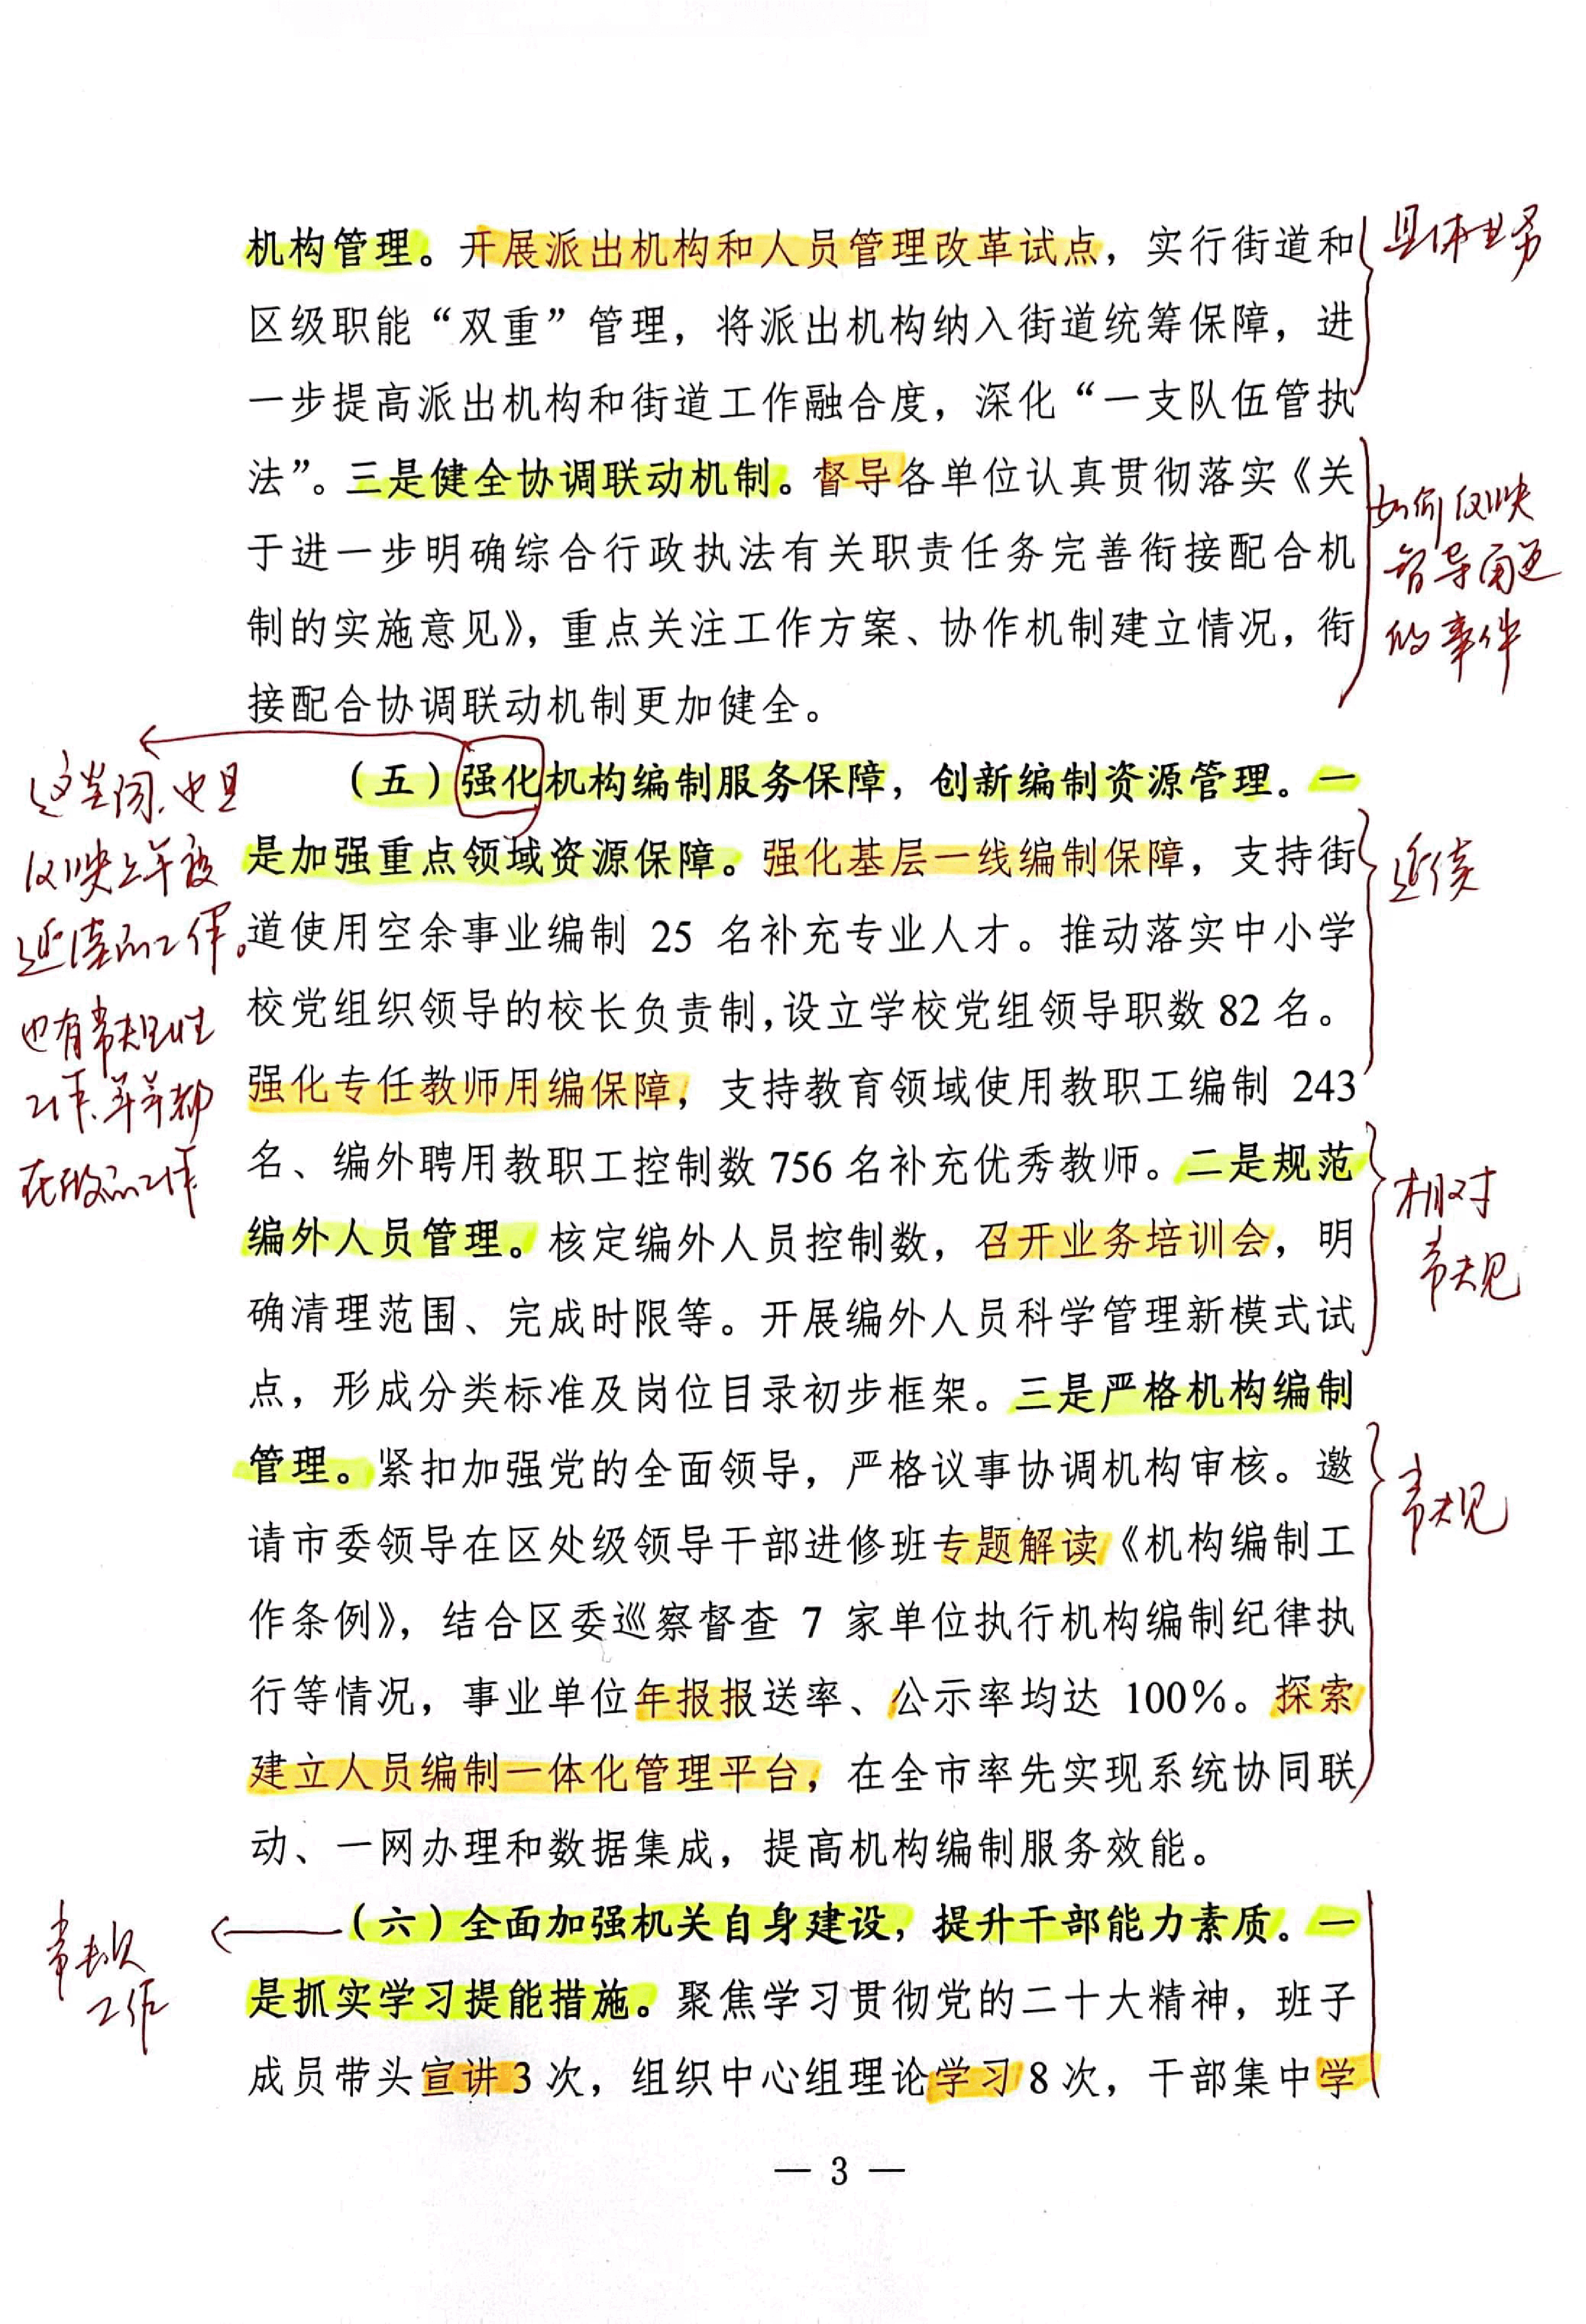 机构管理。开展派出机构和人员管理改革试点，实行街道和
区级职能“双重”管理，将派出机构纳入街道统筹保障，进
一步提高派出机构和街道工作融合度，深化“一支队伍管执
法”。三是健全协调联动机制。督导各单位认真贯彻落实《关
于进一步明确综合行政执法有关职责任务完善衔接配合机
制的实施意见》，重点关注工作方案、协作机制建立情况，衔
接配合协调联动机制更加健全。
（五）强化机构编制服务保障，创新编制资源管理。一
是加强重点领域资源保障。强化基层一线编制保障，支持街
道使用空余事业编制 25 名补充专业人才。推动落实中小学
校党组织领导的校长负责制，设立学校党组领导职数 82 名。
强化专任教师用编保障，支持教育领域使用教职工编制 243
名、编外聘用教职工控制数 756 名补充优秀教师。二是规范
编外人员管理。核定编外人员控制数，召开业务培训会，明
确清理范围、完成时限等。开展编外人员科学管理新模式试
点，形成分类标准及岗位目录初步框架。三是严格机构编制
管理。紧扣加强党的全面领导，严格议事协调机构审核。邀
请市委领导在区处级领导干部进修班专题解读《机构编制工
作条例》，结合区委巡察督查 7 家单位执行机构编制纪律执
行等情况，事业单位年报报送率、公示率均达 100%。探索
建立人员编制一体化管理平台，在全市率先实现系统协同联
动、一网办理和数据集成，提高机构编制服务效能。
（六）全面加强机关自身建设，提升干部能力素质。一
是抓实学习提能措施。聚焦学习贯彻党的二十大精神，班子
成员带头宣讲 3 次，组织中心组理论学习 8 次，干部集中学
— 3 —
具体业务
如何反映
督导
的事件
延续
相对
常规
常规
这类词，也是
反映上年度
延续的工作。
也有常规性
工作、年年都
在做的工作
常规
工作